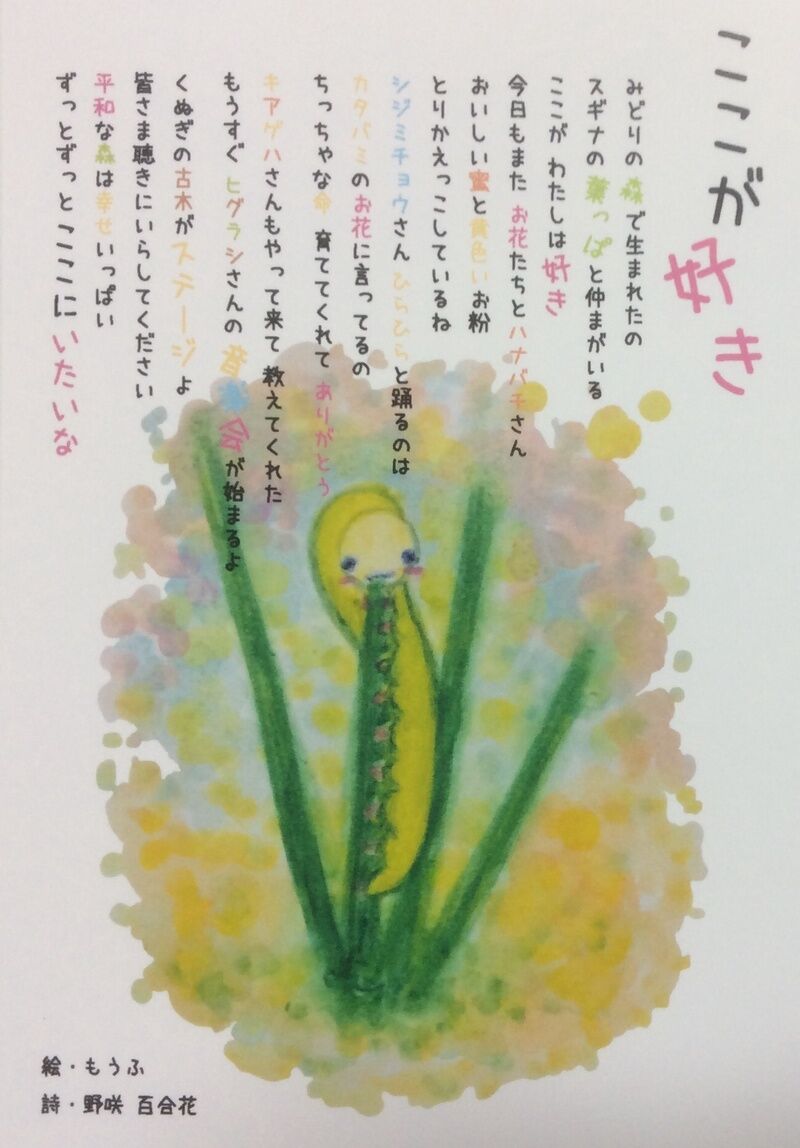 ここが好き
みどりの森で生まれたの
スギナの葉っぱと仲まがいる
ここが わたしは好き
今日もまた お花たちとハナバチさん
おいしい蜜と黄色いお粉
とりかえっこしているね
シジミチョウさん ひらひらと踊るのは
カタバミのお花に言ってるの
ちっちゃな命 育ててくれて ありがとう
キアゲハさんもやって来て 教えてくれた
もうすぐ ヒグラシさんの 音楽会が始まるよ
くぬぎの古木がステージよ
皆さま聴きにいらしてください
平和な森は幸せいっぱい
ずっとずっと ここにいたいな
絵・もうふ
詩・野咲 百合花